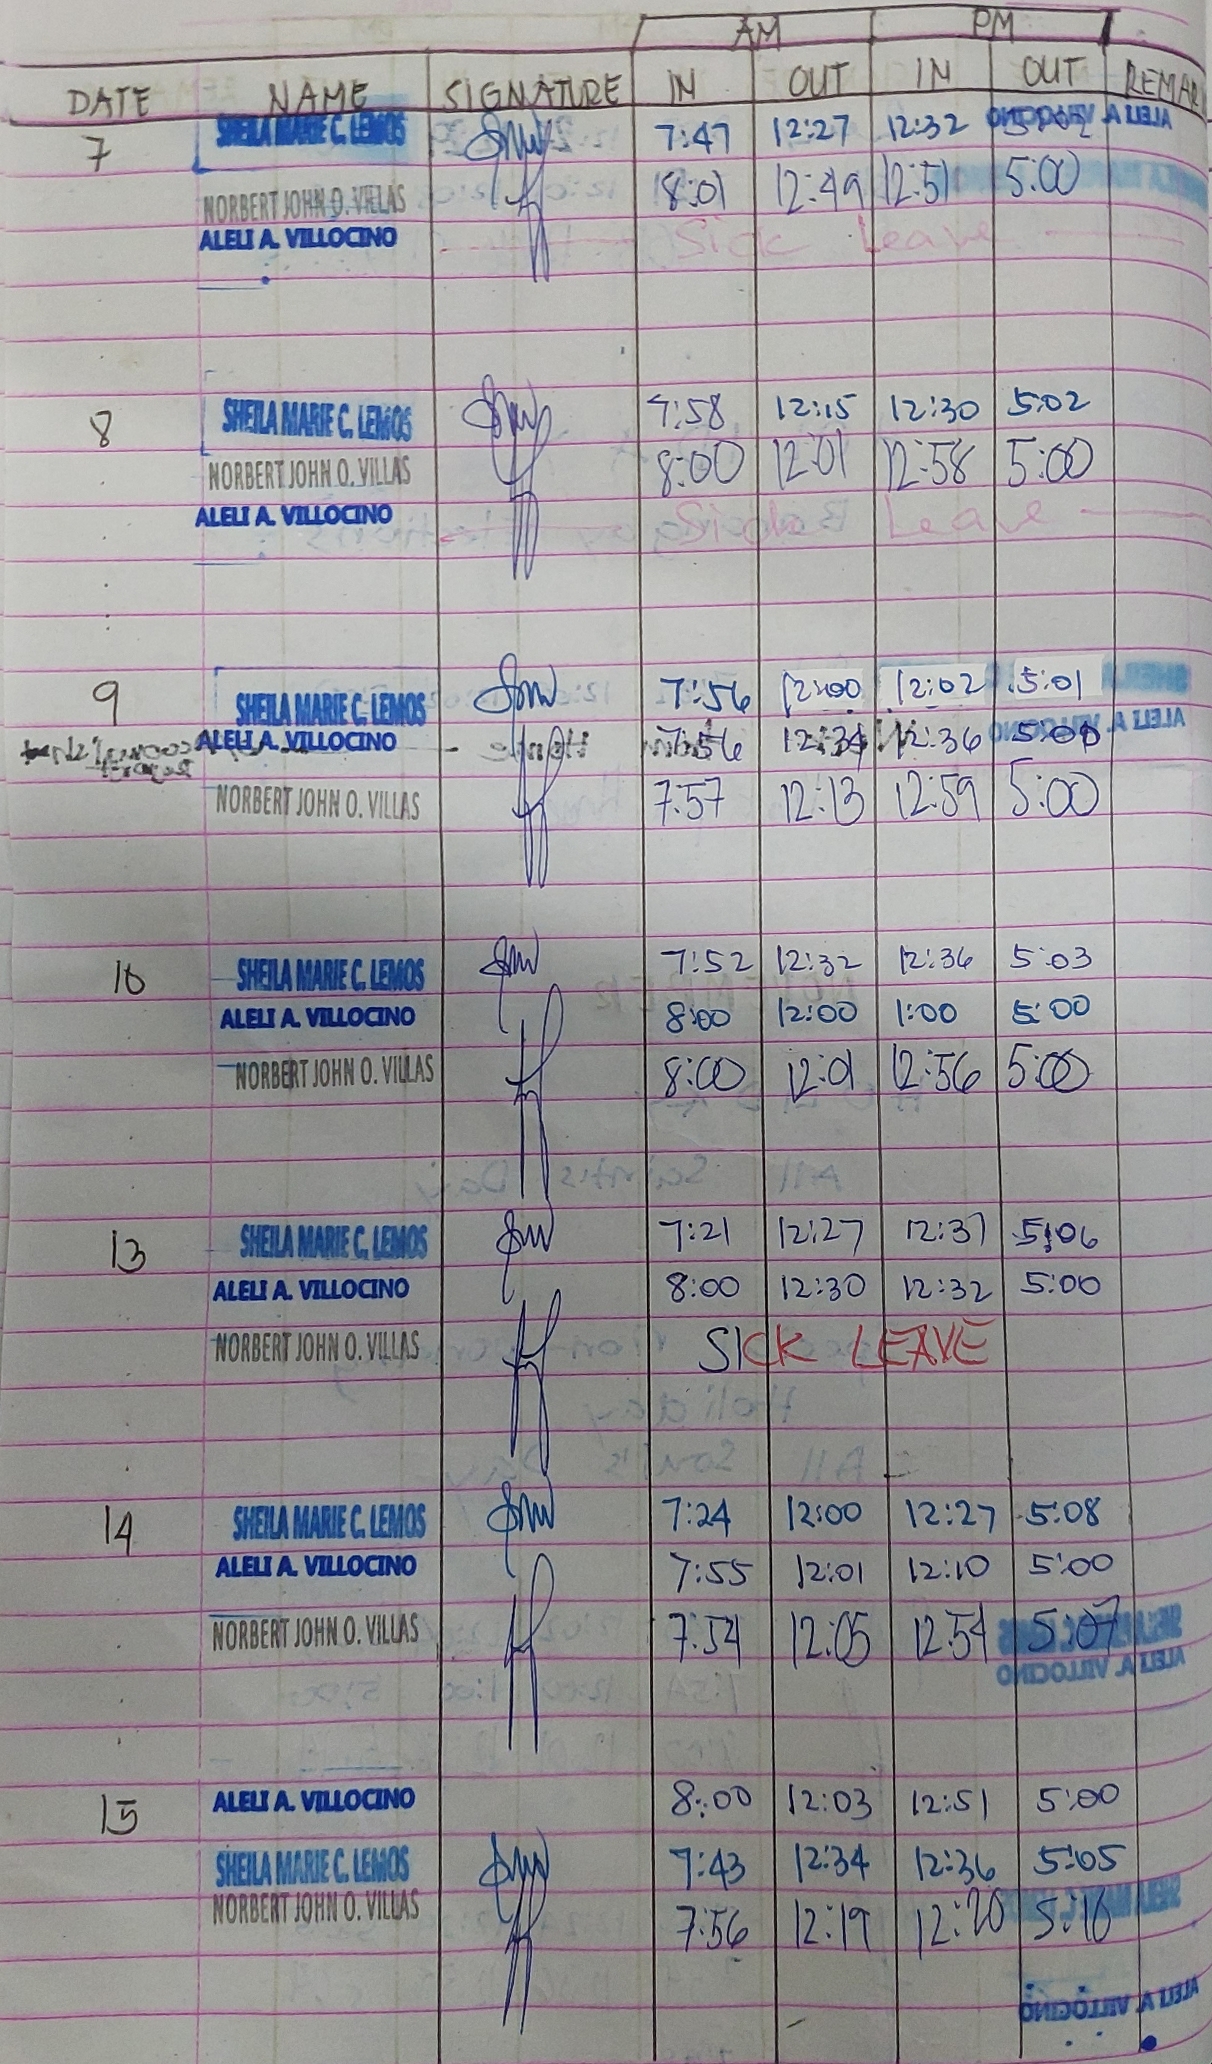 AM PM
DATE NAME SIGNATURE IN OUT IN OUT REMAR
7 SHEILA MARIE C. LEMOS 7:47 12:27 12:32
NORBERT JOHN O. VILLAS 8:01 12:49 12:51 5:00
ALELI A. VILLOCINO Sick Leave
8 SHEILA MARIE C. LEMOS 7:58 12:15 12:30 5:02
NORBERT JOHN O. VILLAS 8:00 12:01 12:58 5:00
ALELI A. VILLOCINO Sick Leave
9 SHEILA MARIE C. LEMOS 7:56 12:00 12:02 5:01
ALELI A. VILLOCINO 7:56 12:34 12:36 5:00
NORBERT JOHN O. VILLAS 7:57 12:13 12:59 5:00
10 SHEILA MARIE C. LEMOS 7:52 12:32 12:36 5:03
ALELI A. VILLOCINO 8:00 12:00 1:00 5:00
NORBERT JOHN O. VILLAS 8:00 12:01 12:56 5:00
13 SHEILA MARIE C. LEMOS 7:21 12:27 12:37 5:06
ALELI A. VILLOCINO 8:00 12:30 12:32 5:00
NORBERT JOHN O. VILLAS SICK LEAVE
14 SHEILA MARIE C. LEMOS 7:24 12:00 12:27 5:08
ALELI A. VILLOCINO 7:55 12:01 12:10 5:00
NORBERT JOHN O. VILLAS 7:54 12:05 12:54 5:07
15 ALELI A. VILLOCINO 8:00 12:03 12:51 5:00
SHEILA MARIE C. LEMOS 7:43 12:34 12:36 5:05
NORBERT JOHN O. VILLAS 7:56 12:19 12:20 5:10